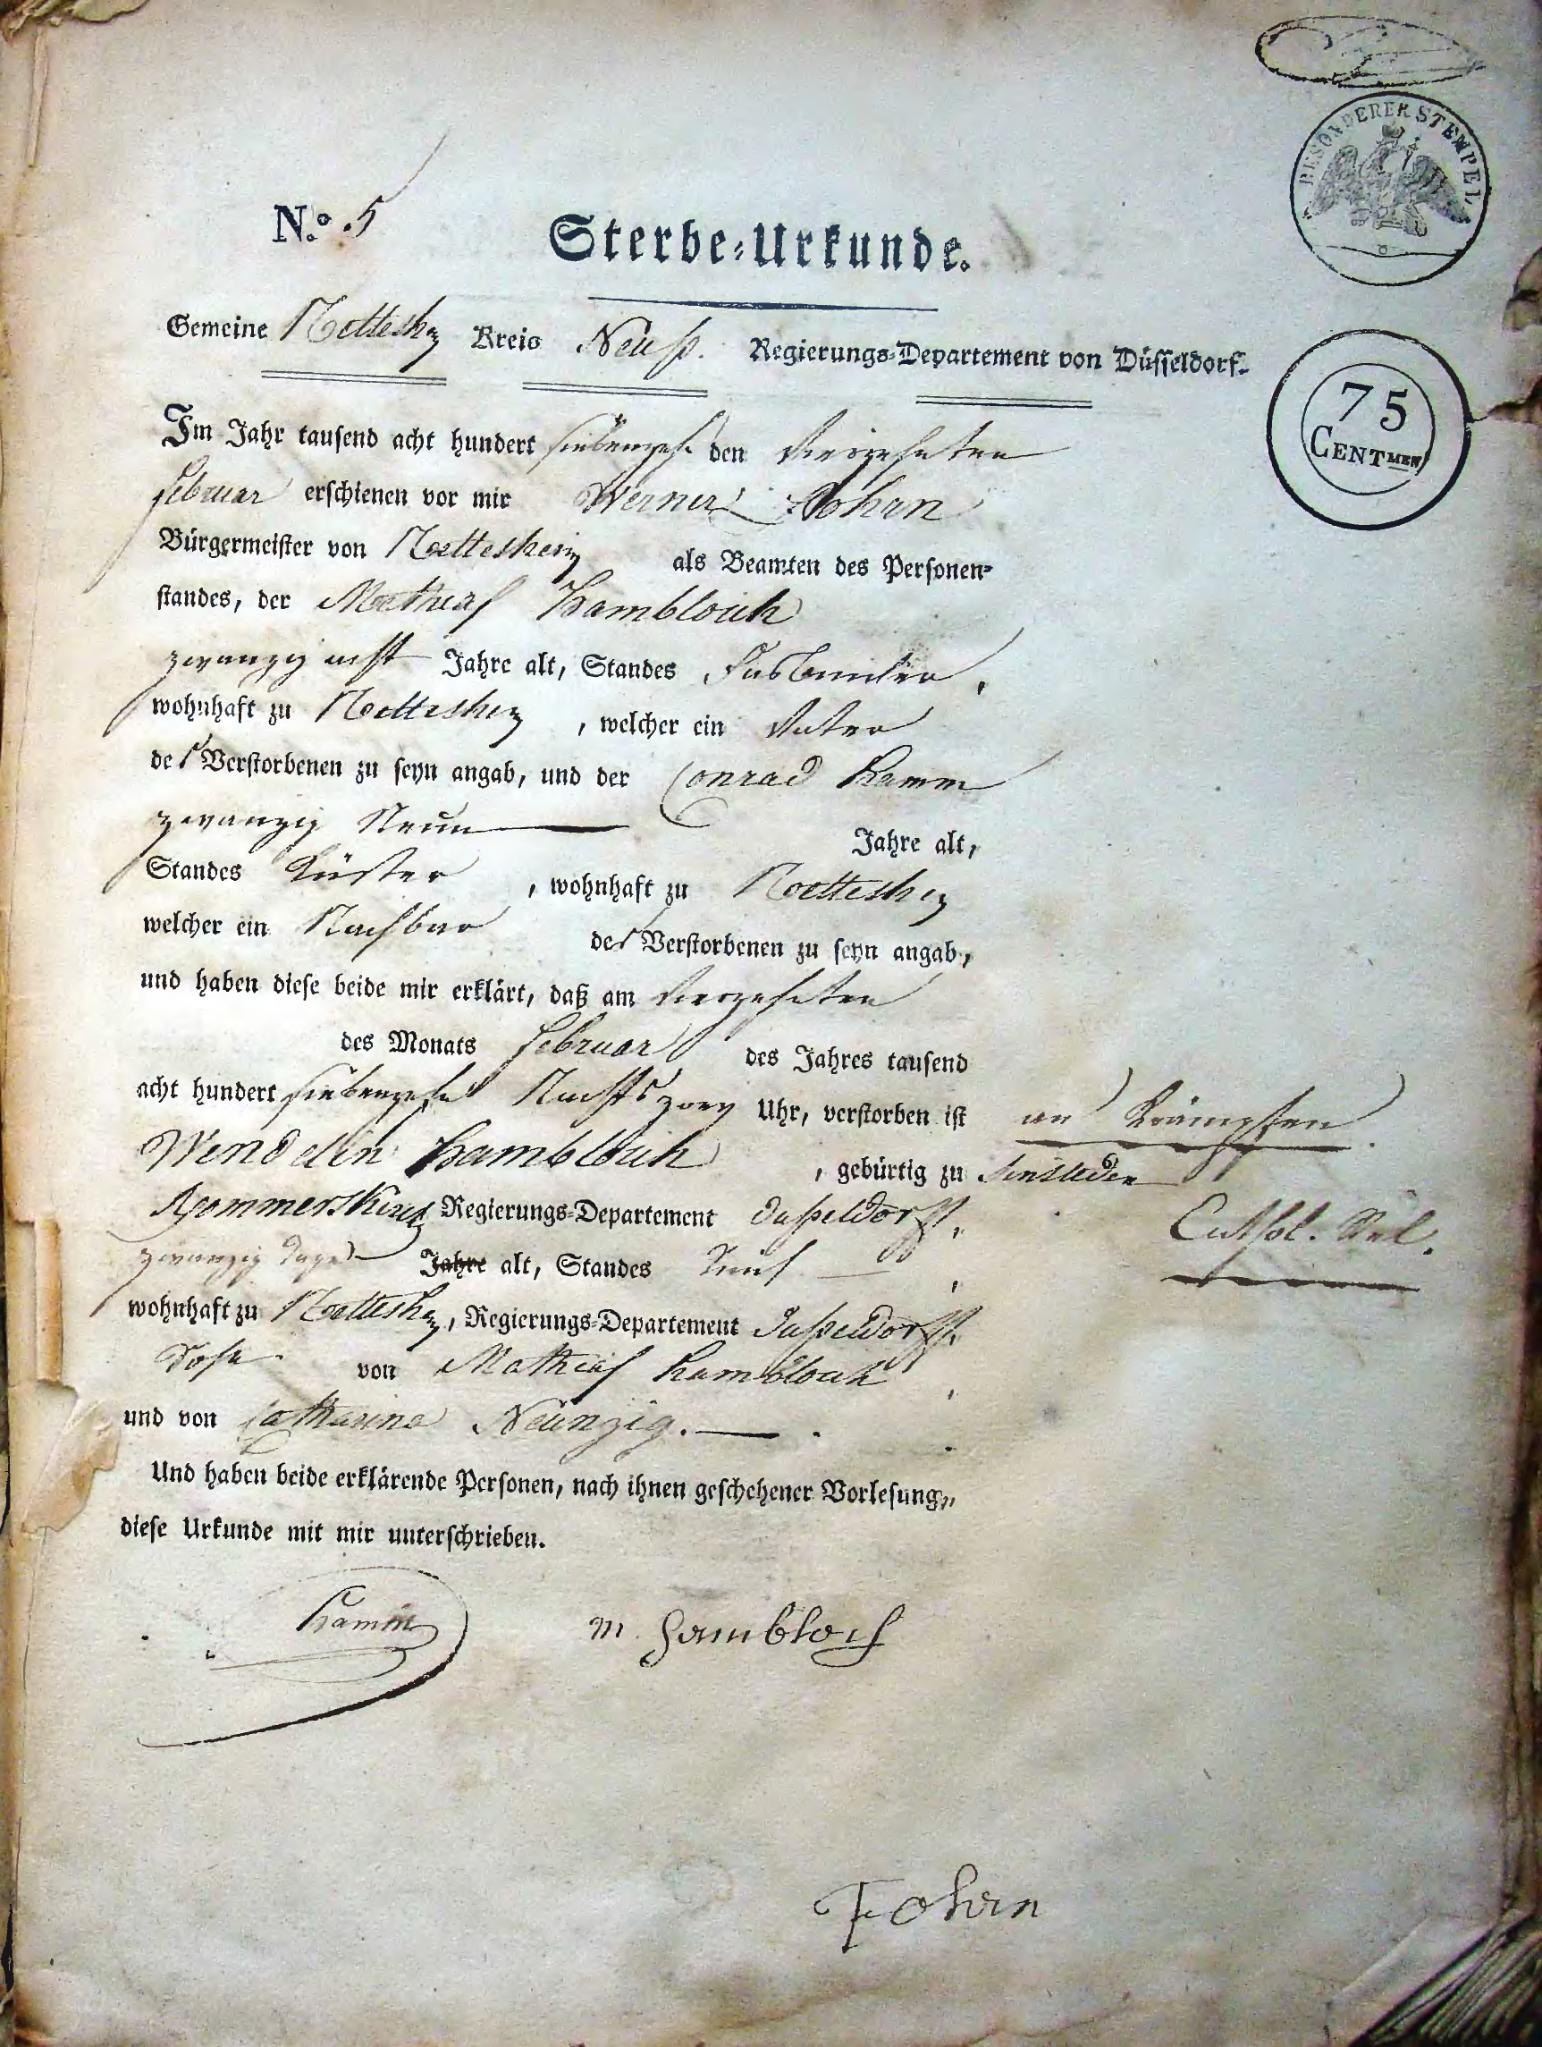 BESONDERER STEMPEL
No. 5
Sterbe-Urkunde.
Gemeine Nettesh Kreis Neuß. Regierungs-Departement von Düsseldorf.
75
CENTMEN
Im Jahr tausend acht hundert siebenzehn den Vierzehnten
Februar erschienen vor mir Werner Fohrn
Bürgermeister von Nettesheim als Beamten des Personen-
standes, der Mathias Hambloch
zwanzig acht Jahre alt, Standes
wohnhaft zu Nettesheim, welcher ein Vater
des Verstorbenen zu seyn angab, und der Conrad Hamm
zwanzig Neun Jahre alt,
Standes Küster, wohnhaft zu Nettesheim
welcher ein Nachbar des Verstorbenen zu seyn angab,
und haben diese beide mir erklärt, daß am Vierzehnten
des Monats Februar des Jahres tausend
acht hundert siebenzehn Nachts zwey Uhr, verstorben ist an Krämpfen
Wendelin Hambloch, gebürtig zu Sinsteden
Rommerskirch Regierungs-Departement Dußeldorff. Cathol. Rel.
zwanzig Tage Jahre alt, Standes
wohnhaft zu Nettesheim, Regierungs-Departement Dußeldorff.
Sohn von Mathias Hambloch
und von Catharina Neunzig.
Und haben beide erklärende Personen, nach ihnen geschehener Vorlesung,
diese Urkunde mit mir unterschrieben.
Hamm M. Hambloch
Fohrn